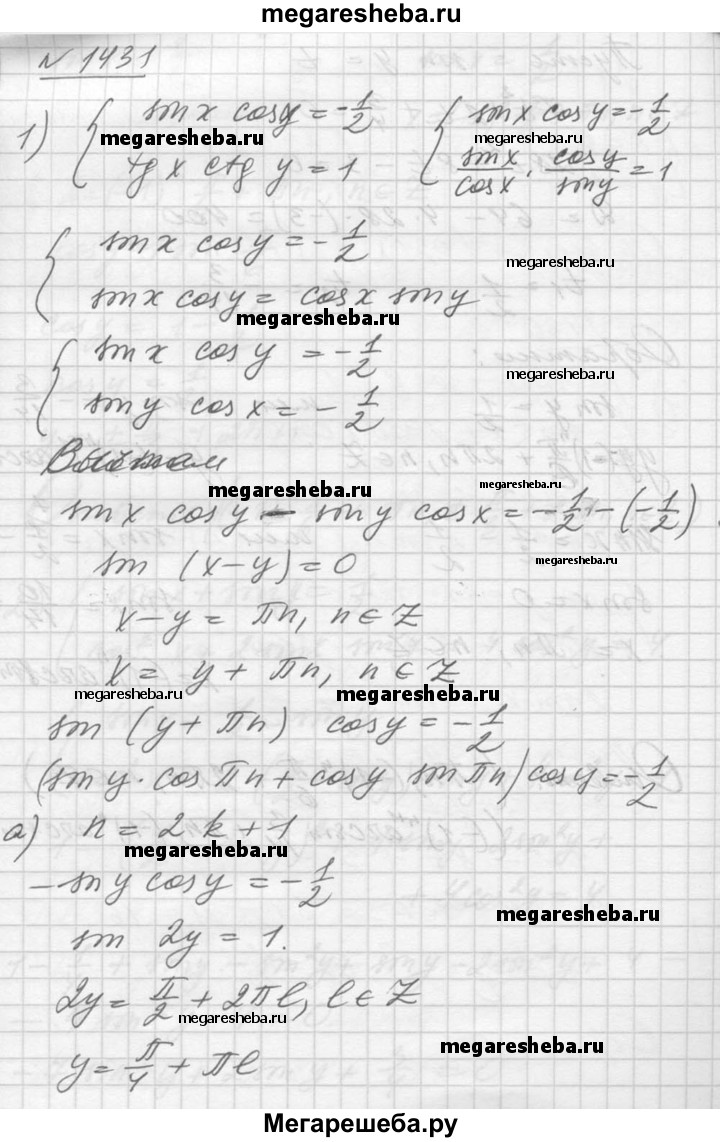 megaresheba.ru
№ 1431
1) { sin x cos y = -1/2 { sin x cos y = -1/2
megaresheba.ru megaresheba.ru
tg x ctg y = 1 sin x/cos x · cos y/sin y = 1
{ sin x cos y = -1/2
megaresheba.ru
sin x cos y = cos x sin y
megaresheba.ru
{ sin x cos y = -1/2
megaresheba.ru
sin y cos x = -1/2
Вычтем
megaresheba.ru megaresheba.ru
sin x cos y - sin y cos x = -1/2 - (-1/2)
sin (x-y) = 0
megaresheba.ru
x - y = πn, n ∈ Z
x = y + πn, n ∈ Z
megaresheba.ru megaresheba.ru
sin (y + πn) cos y = -1/2
(sin y · cos πn + cos y sin πn) cos y = -1/2
а) n = 2k + 1
megaresheba.ru
- sin y cos y = -1/2
megaresheba.ru
sin 2y = 1.
2y = π/2 + 2πl, l ∈ Z
megaresheba.ru
megaresheba.ru
y = π/4 + πl
Мегарешеба.ру